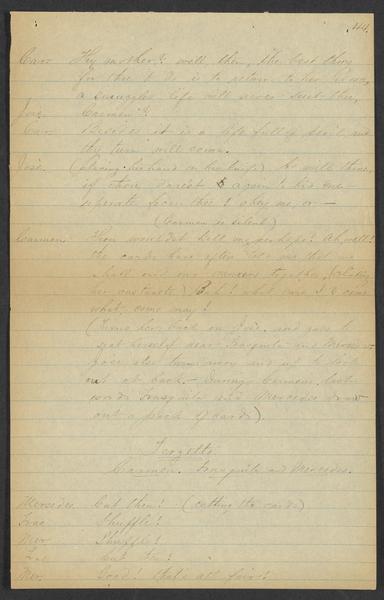 44.
Car. Thy mother? well, then, the best thing
for thee to do is to return to her for
a smuggler's life will never suit thee,
José Carmen!
Car. Besides it is a life full of peril and
thy turn will come.
José (Laying his hand on his knife) As will thine,
if thou darest again to bid me
separate from thee! obey me, or —
(Carmen is silent)
Carmen. Thou would'st kill me, perhaps? Ah, well!
the cards have often told me that we
shall end our careers together, (shaking
her castanets) Bah! what care I come
what, come may!
(Turns her back on José, and goes to
seat herself near Frasquita and Mercedes
José also turns away and
out at back. — During Carmen's last
words Frasquita and Mercedes draw
out a pack of cards).
Terzetto.
Carmen, Frasquita and Mercedes.
Mercedes Cut then! (cutting the cards)
Fras Shuffle!
Mer Shuffle!
Fra Cut
Mer. Good! that's all fair!